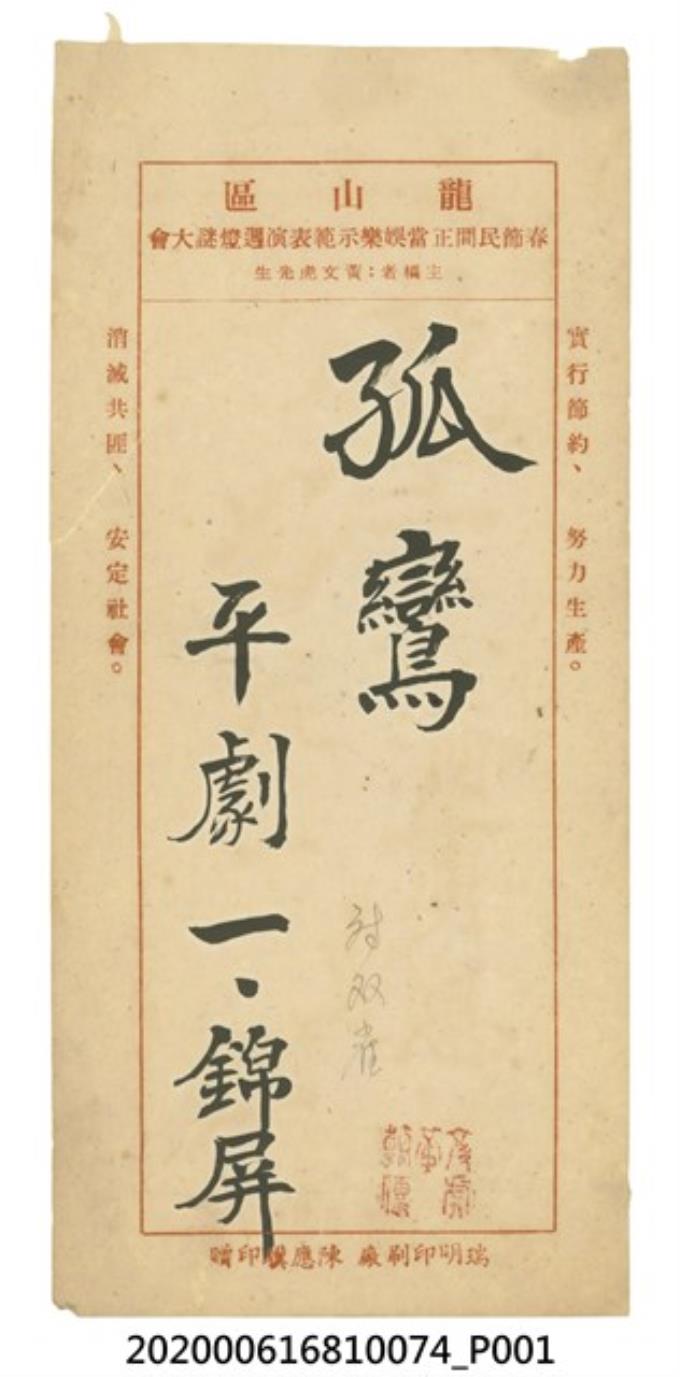 龍山區
春節民間正當娛樂示範表演週燈謎大會
主稿者：黃文虎先生
實行節約、 努力生產。
孤鸞
双雀
平劇一·錦屏
消滅共匪、 安定社會。
瑞明印刷廠 陳應印贈